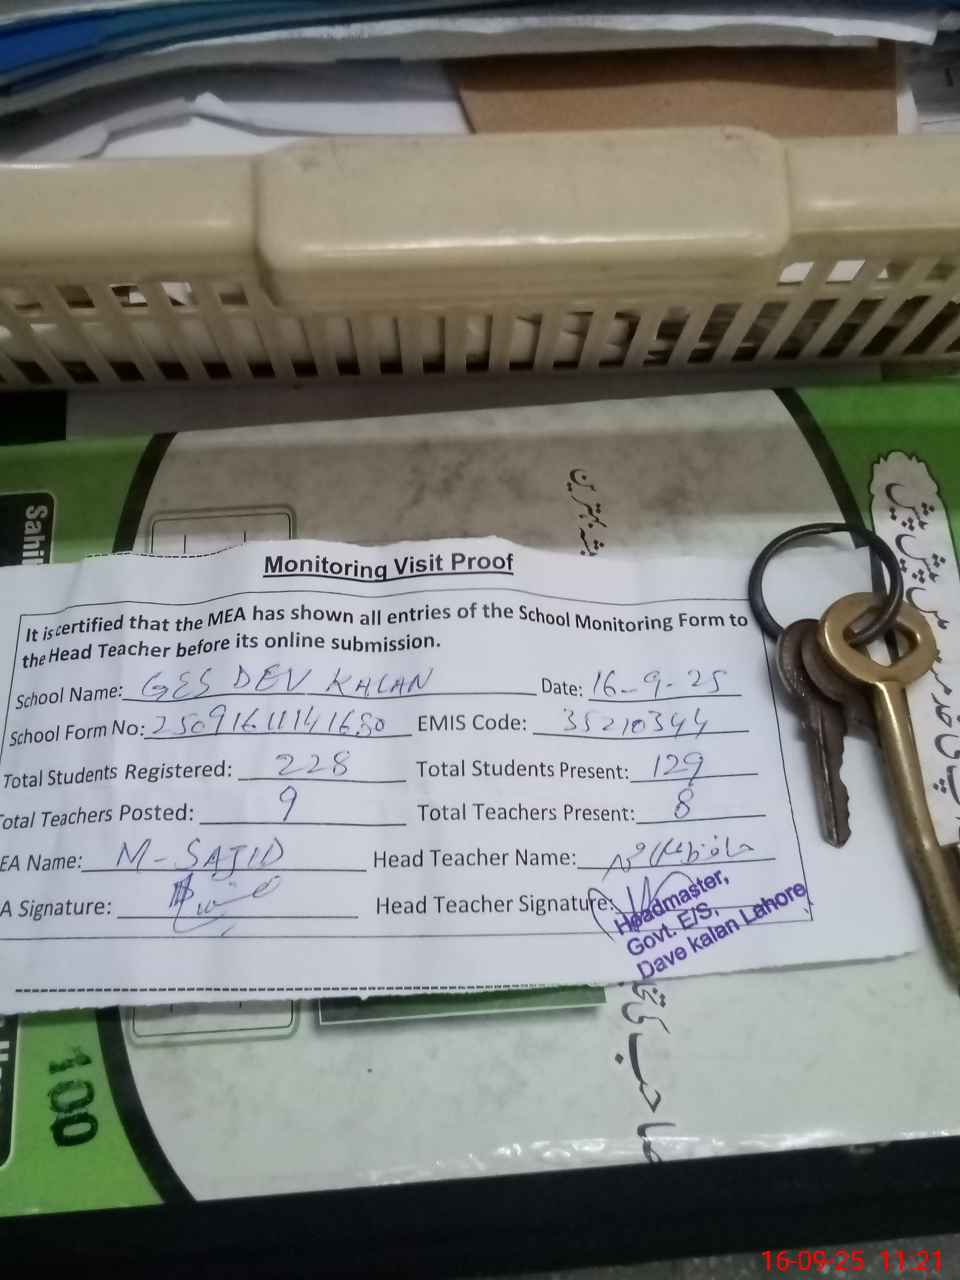 Sahi
بہترین
Monitoring Visit Proof
It is certified that the MEA has shown all entries of the School Monitoring Form to
the Head Teacher before its online submission.
School Name: GES DEV KALAN Date: 16-9-25
School Form No: 25091611141680 EMIS Code: 35210344
Total Students Registered: 228 Total Students Present: 129
otal Teachers Posted: 9 Total Teachers Present: 8
EA Name: M-SAJID Head Teacher Name:
A Signature: Head Teacher Signature:
Headmaster,
Govt. E/S,
Dave kalan Lahore
صاحب کی
100
16-09-25 11:21